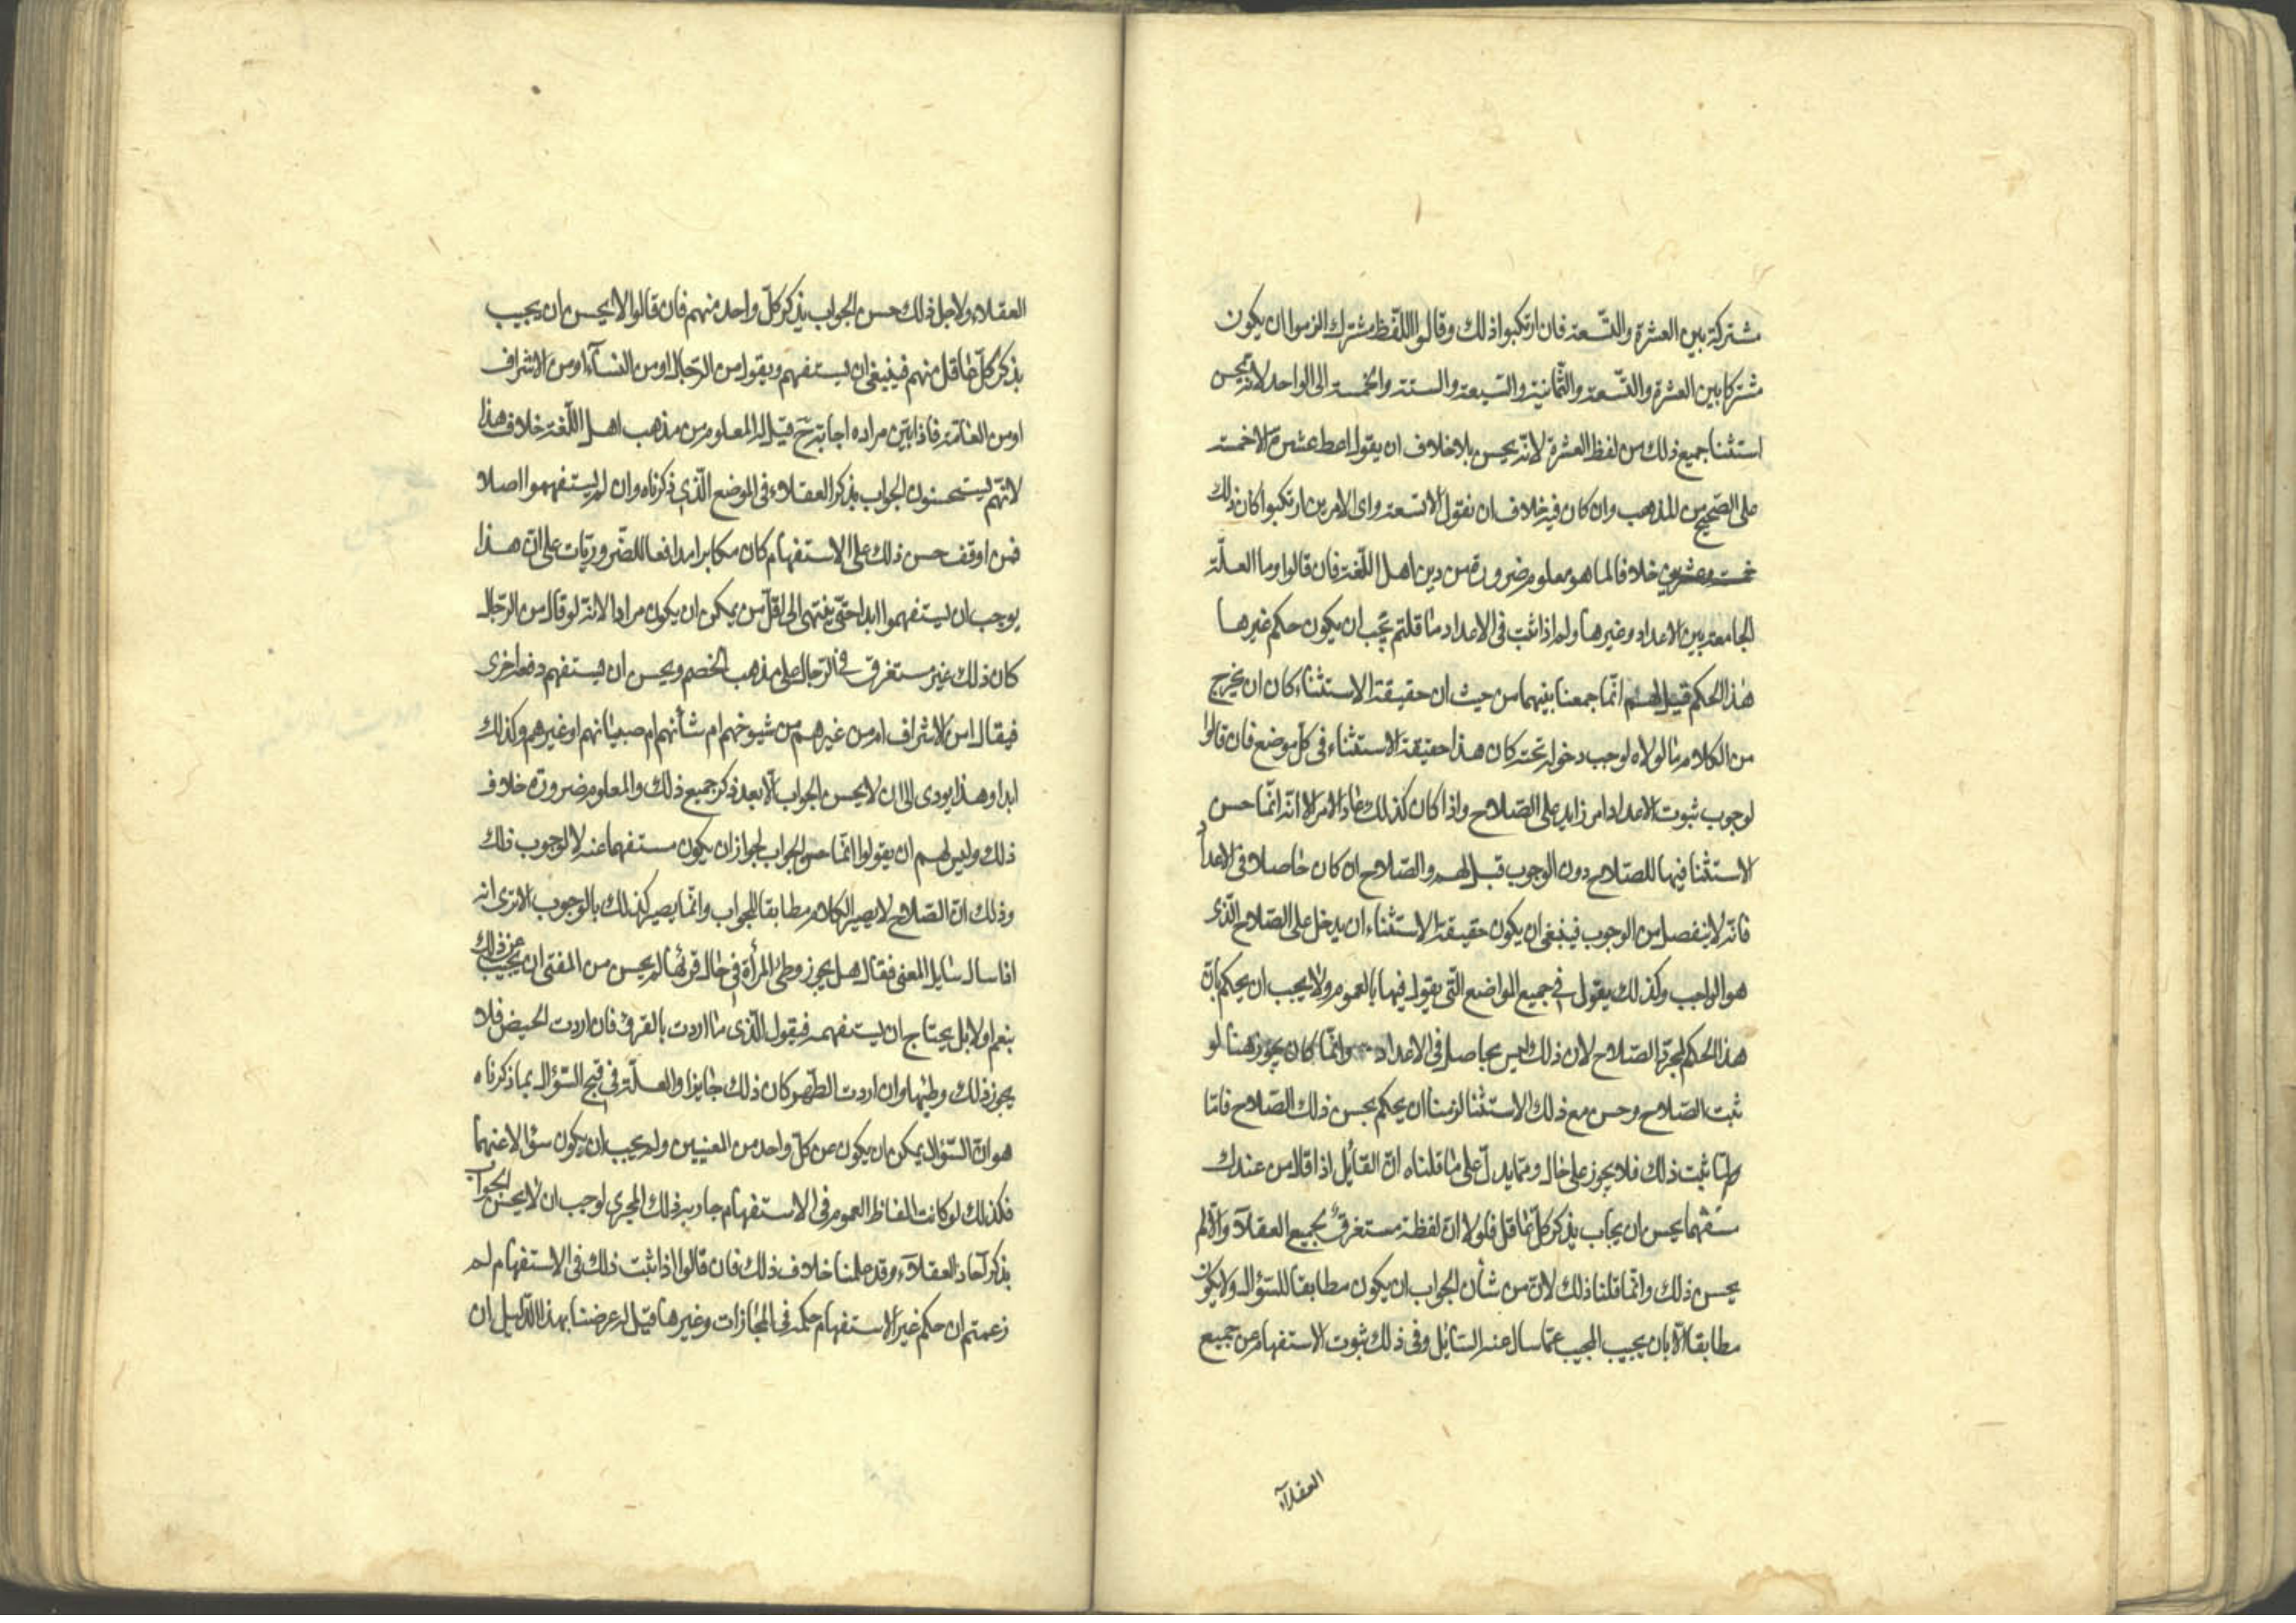 مشتركة بين العشرة والتّسعة فان ارتكبوا ذلك وقالوا اللّفظ مشترك الزموا ان يكون
مشتركا بين العشرة والتّسعة والثّمانية والسّبعة والستة والخمسة الى الواحد لانّه يحسن
استثنا جميع ذلك من لفظ العشرة لانّه يحسن بلا خلاف ان يقول اعط عشرة الا خمسة
على الصّحيح من المذهب وان كان فيه خلاف ان نقول الا تسعة واى الامرين ارتكبوا كان ذلك
خلافا لما هو معلوم ضرورة من دين اهل اللّغة فان قالوا وما العلّة
الجامعة بين الاعداد وغيرها ولم اذا ثبت فى الاعداد ما قلتم يجب ان يكون حكم غيرها
هذا الحكم قيل لهم انّما جمعنا بينهما من حيث ان حقيقة الاستثناء كان ان يخرج
من الكلام ما لولاه لوجب دخوله تحته كان هذا حقيقة الاستثناء فى كلّ موضع فان قالوا
لوجوب ثبوت الاعداد امر زايد على الصّلاح واذا كان كذلك عاد الامر الا انّه انّما حسن
الاستثنا فيها للصّلاح دون الوجوب قيل لهم والصّلاح ان كان حاصلا فى الاعداد
فانّه لا ينفصل من الوجوب فينبغى ان يكون حقيقة الاستثناء ان يدخل على الصّلاح الّذى
هو الواجب وكذلك يقول فى جميع المواضع التّى يقول فيها بالعموم ولا يجب ان يحكم بانّ
هذا الحكم لمجرّد الصّلاح لان ذلك ليس بحاصل فى الاعداد وانّما كان يجوز هنا لو
ثبت الصّلاح وحسن مع ذلك الاستثنا لزمنا ان يحكم بحسن ذلك الصّلاح فامّا
ولمّا ثبت ذلك فلا يجوز على حال وممّا يدلّ على ما قلناه انّ القائل اذا قال من عندك
مستفهما يحسن ان يجاب بذكر كلّ عاقل فلولا انّ لفظة مستغرقة لجميع العقلآء والّا لم
يحسن ذلك وانّما قلنا ذلك لانّ من شأن الجواب ان يكون مطابقا للسّؤال ولا يكون
مطابقا الّا بان يجيب المجيب عمّا سال عنه السّائل وفى ذلك ثبوت الاستفهام عن جميع
العقلآء
العقلاء ولاجل ذلك حسن الجواب بذكر كلّ واحد منهم فان قالوا لا يحسن ان يجيب
بذكر كلّ عاقل منهم فينبغى ان يستفهم ويقول من الرّجال او من النّسآء او من الاشراف
او من العامّة فاذا تبيّن مراده اجابه ح قيل له المعلوم من مذهب اهل اللّغة خلاف هذا
لانّهم يستحسنون الجواب بذكر العقلاء فى الموضع الّذى ذكرناه وان لم يستفهموا اصلا
فمن اوقف حسن ذلك على الاستفهام كان مكابرا مدافعا للضّروريّات على انّ هذا
يوجب ان يستفهموا ابدا حتّى ينتهى الى اقلّ من يمكن ان يكون مرادا لانّه لو قال من الرّجال
كان ذلك غير مستغرق فى الرّجال على مذهب الخصم ويحسن ان يستفهم دفعة اخرى
فيقال امن الاشراف ام من غيرهم من شيوخهم ام شبّانهم ام صبيانهم او غيرهم وكذلك
ابدا وهذا يودى الى ان لا يحسن الجواب الّا بعد ذكر جميع ذلك والمعلوم ضرورة خلاف
ذلك وليس لهم ان يقولوا انّما حسن الجواب لجواز ان يكون مستفهما عنه لا لوجوب ذلك
وذلك انّ الصّلاح لا يصير الكلام مطابقا للجواب وانّما يصير كذلك بالوجوب الا ترى انه
اذا سال سايل المفتى فقال هل يجوز وطئ المرأة فى حال قرئها لم يحسن من المفتى ان يجيب عن ذلك
بنعم او لا بل يحتاج ان يستفهمه فيقول الّذى ما اردت بالقرؤ فان اردت الحيض فلا
يجوز ذلك وطيها وان اردت الطّهر كان ذلك جايزا والعلّة فى قبح السّؤال بما ذكرناه
هو انّ السّؤال يمكن ان يكون عن كلّ واحد من المعنيين ولم يجب ان يكون سؤالا عنهما
فكذلك لو كانت الفاظ العموم فى الاستفهام جارية ذلك المجرى لوجب ان لا يحسن الجواب
بذكر آحاد العقلآء وقد علمنا خلاف ذلك فان قالوا اذا ثبت ذلك فى الاستفهام لم
زعمتم ان حكم غير الاستفهام حكمه فى المجازات وغيرها قيل له غرضنا بهذا الدّليل ان